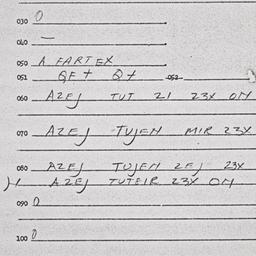 030 0
040 —
050 A FARTEX
051 QF+ Q+ 052
060 AZEJ TUT 21 23X OM
070 AZEJ TUJEN MIR 23X
080 AZEJ TUJEN 2EJ 23X
H AZEJ TUTEIR 23X OM
090 0
100 0